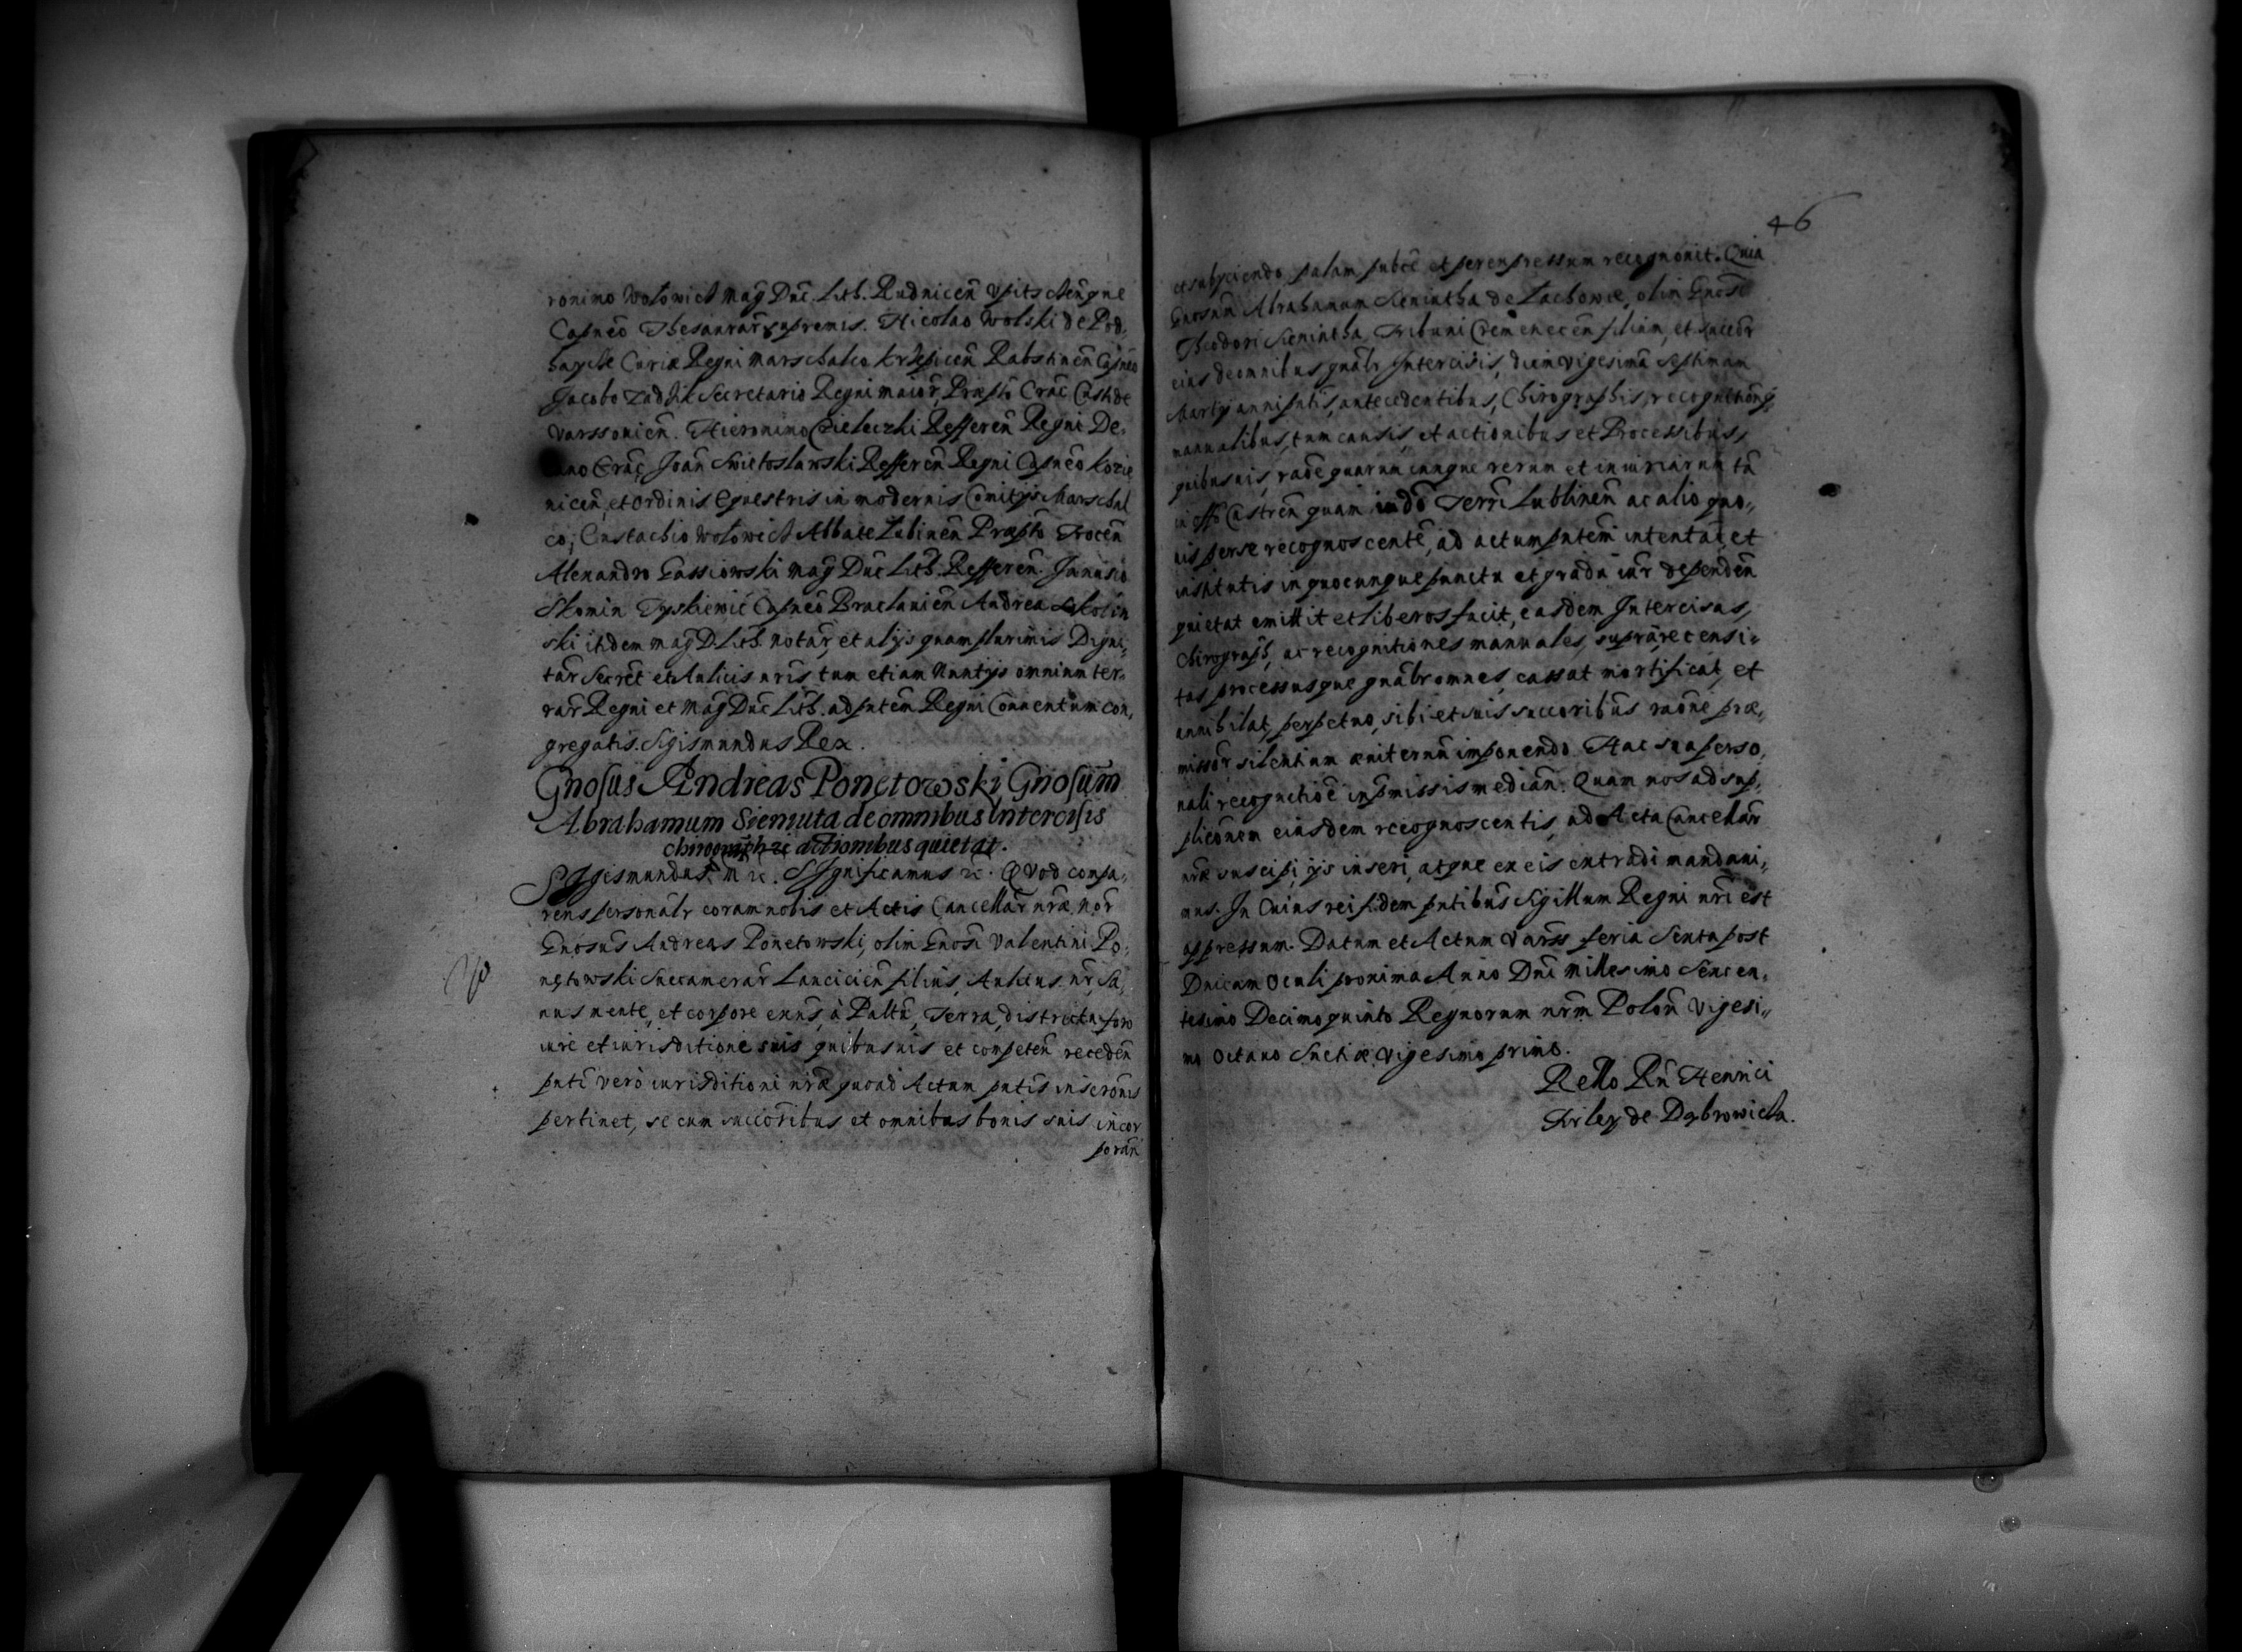 ronimo Wołowicz Mag̃ Duc̃. Lith. Rudnicen̄ Vpits chen̄qne
Capneo Thesaurar̄ supremis. Nicolao Wolski de Pod,
hayce Curiæ Regni Marschalco Krzepicen̄ Rabstinen̄ Capneo
Jacobo Zadzik Secretario Regni maior, Præpto Crac̄. Custode
Varssouien̄. Hieronimo Cieleczki Refferen̄ Regni De,
cano Crac̄, Joan̄ Swietoslawski Refferen̄ Regni Capneo kozie
nicen̄, et Ordinis Equestris in modernis Comitijs Marschal
co, Eustachio Wołowicz Abbate Lubinen̄ Præpto Trocen̄
Alexandro Gassiowski Mag̃ Duc̄ Lith. Refferen̄. Janusio
Skomin Tyskiewic̄ Capneo Braclauien̄ Andrea Skolin
ski itidem Mag̃ D. Lith. notar̄, et alijs quamplurimis Digni,
tar̄ Secret̄ et Aulicis nr̄is tum etiam Nuntijs omnium ter,
rar̄ Regni et Mag̃ Duc̄ Lith. ad pn̄tem Regni Conuentum con,
gregatis. Sigismundus Rex.
Gnosus Andreas Ponętowski Gnosum
Abrahamum Sieniuta de omnibus Intercisis
chirograph ꝛc actionibus quietat.
Sigismundus m̄ ꝛc. Significamus ꝛc. Quod compa,
rens personalr̄ coram nobis et Actis Cancellar̄ nr̄æ, Nor̄
Gnosus Andreas Ponetowski, olim Gnosi Valentini Po,
nętowski Succamerar̄ Lancicien̄ filius, Aulicus nr̄, Sa,
nus mente, et corpore exn̄s, à Palt̄n, Terra, districtu, foro
iure et iurisditione suis quibusuis et competen̄ receden̄
pn̄ti vero iurisditioni nr̄æ quoad Actum pn̄tis inscron̄is
pertinet, se cum succoribus et omnibus bonis suis incor
poran̄
46
et subijciendo palam pub̄ce et per expressum recognouit. Quia
Gnosum Abrahamum Sieniutha de Lachowce, olim Gnosi
Theodori Sieniutha Tribuni Cremenecen̄ filium, et succor̄
eius de omnibus gnālr̄ Intercisis, diem vigesimā septimam
Martij anni pn̄tis, antecedentibus, Chirographis, recognition̄ꝗ
manualibus, tum causis, et actionibus et Processibus,
quibusuis, raōe quarumcunque rerum et iniuriarum tā
in offo Castren̄ quam in dō Terrī Lublinen̄ ac alio quo,,
uis per se recognoscente, ad actum pn̄tem intentat̄, et
institutis in quocunque puncto et gradu iur̄ dependen̄
quietat emittit et liberos facit, easdem Intercisas,
Chirograph, ac recognitiones manuales, supra recensi,,
tas processusque gnālr̄ omnes, cassat mortificat, et
annihilat, perpetuo, sibi et suis succoribus raōne præ,,
missor̄ silentium æuiternū imponendo. Hac sua perso,
nali recognitioē in p̄missis median̄. Quam nos ad sup,
plicōnem eiusdem recognoscentis, ad Acta Cancellar̄
nr̄æ suscipi, ijs inseri, atque ex eis extradi mandaui,,
mus. In Cuius rei fidem pn̄tibus Sigillum Regni nr̄i est
appressum. Datum et Actum Varss̄ feria Sexta post
Dnicam Oculi proxima Anno Dn̄i Millesimo Sexcen,
tesimo Decimo quinto Regnorum nr̄m Polon̄ Vigesi,,
mo Octauo Sueti æ Vigesimo primo.
Rello Rn̄ Henrici
Firley de Dąbrowicza.